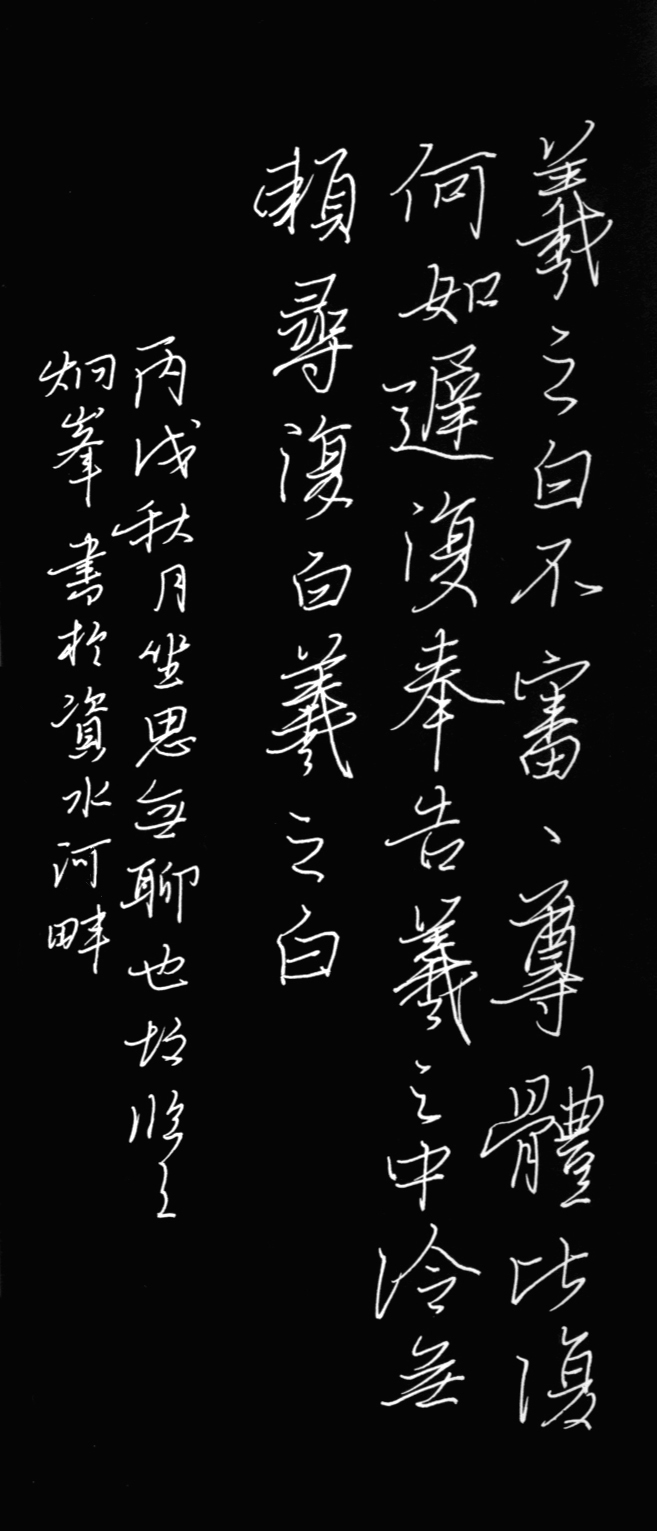 羲之白不審、尊體比復
何如遲復奉告羲之中冷無
賴尋復白羲之白
丙戌秋月坐思無聊也故臨之
炯峯書於資水河畔